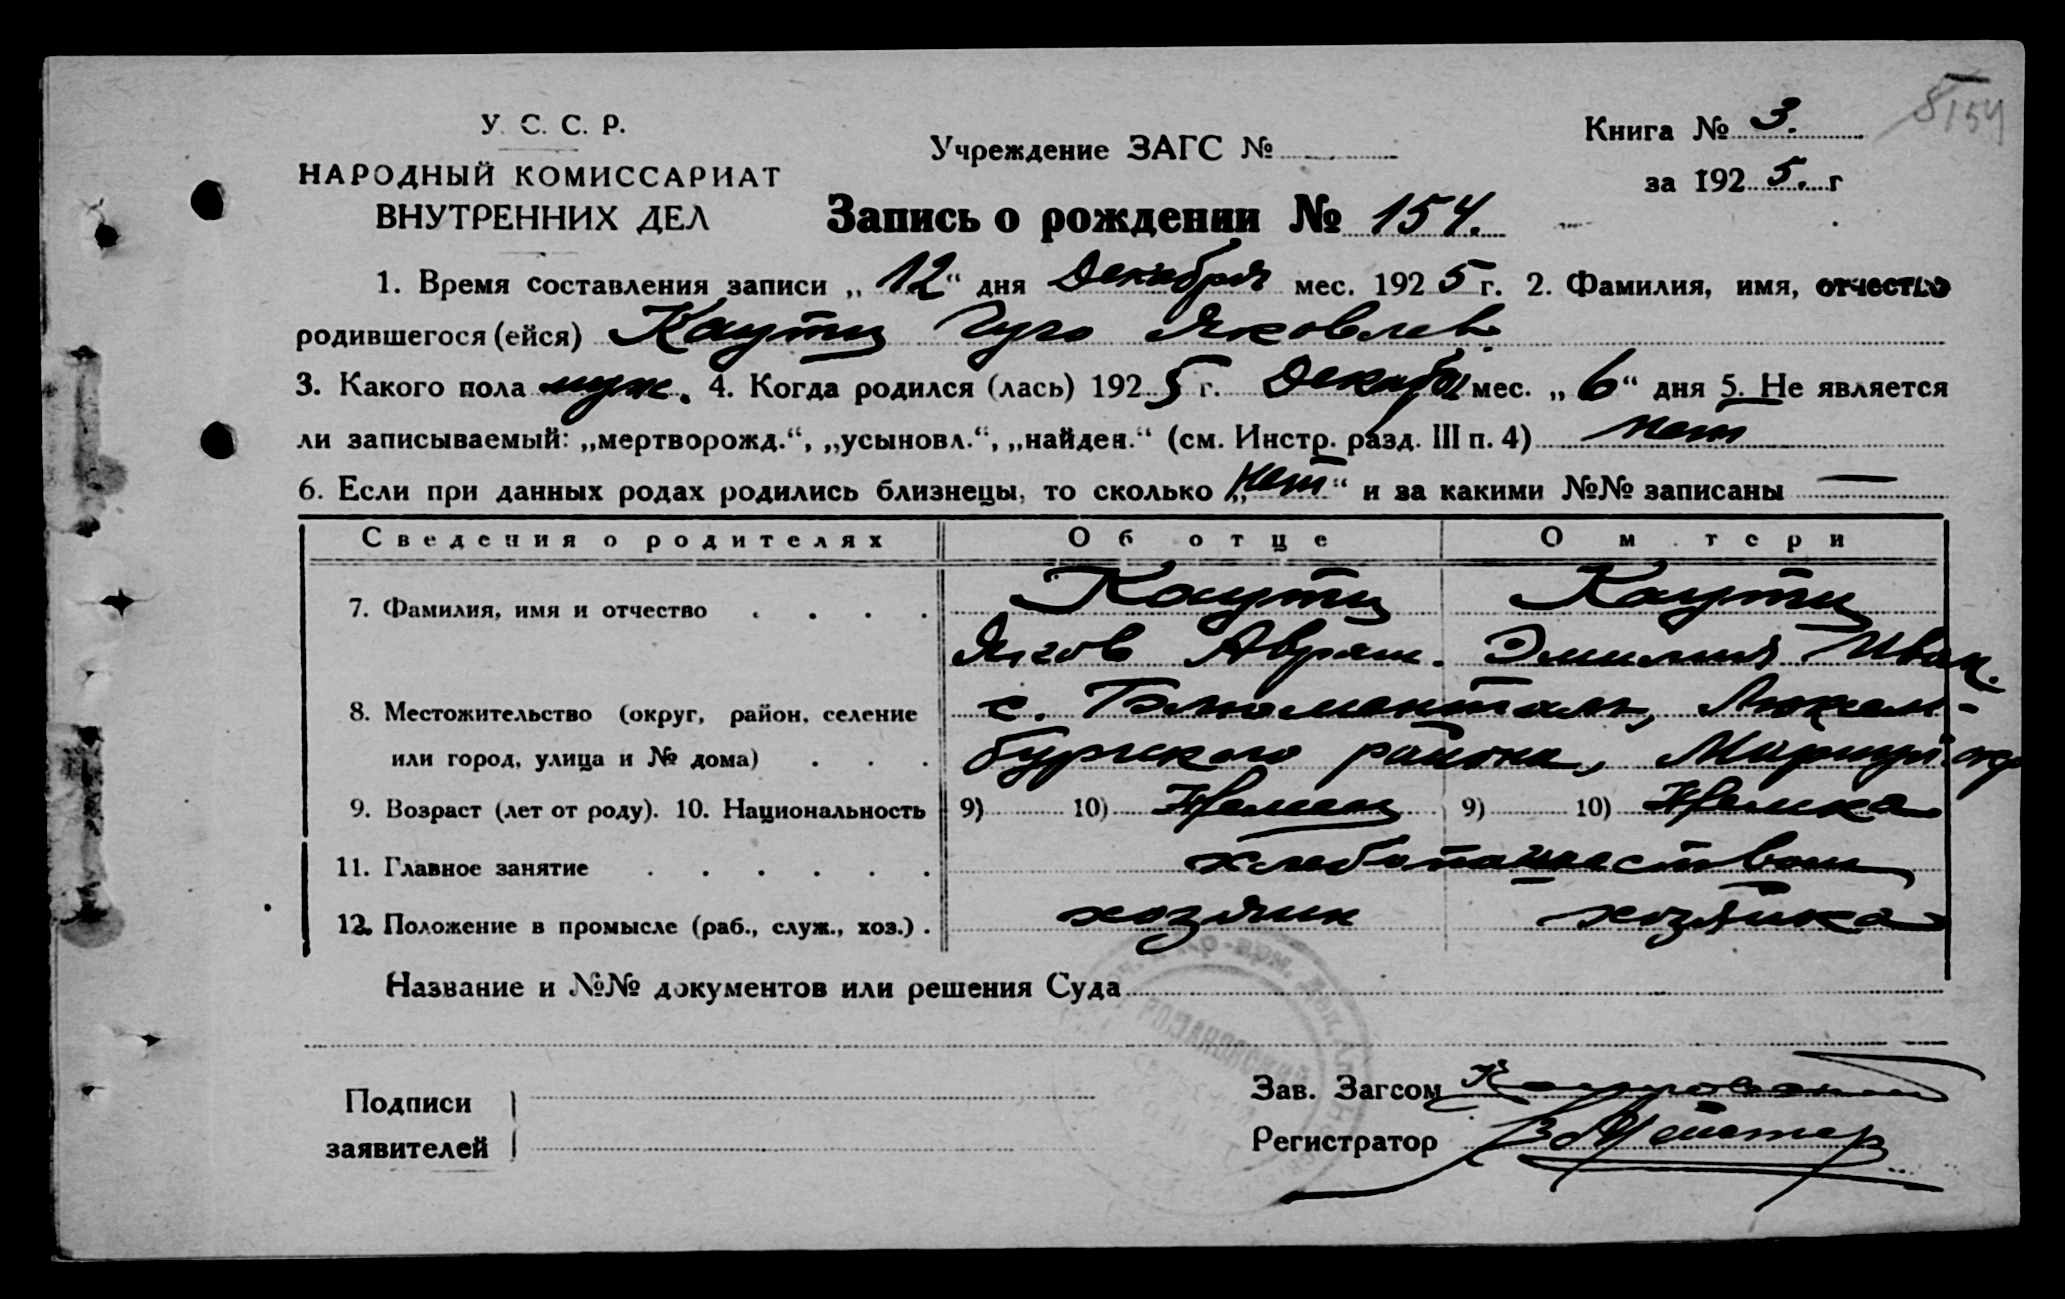 8/154
У. С. С. Р.
НАРОДНЫЙ КОМИССАРИАТ
ВНУТРЕННИХ ДЕЛ
Учреждение ЗАГС №
Книга № 3.
за 1925. г
Запись о рождении № 154.
1. Время составления записи „12“ дня Декабря мес. 1925 г. 2. Фамилия, имя, отчество
родившегося (ейся) Каутц Гуго Яковлев.
3. Какого пола муж. 4. Когда родился (лась) 1925 г. Декабря мес. „6“ дня 5. Не является
ли записываемый: „мертворожд.“, „усыновл.“, „найден.“ (см. Инстр. разд. III п. 4) нет
6. Если при данных родах родились близнецы, то сколько „нет“ и за какими №№ записаны —
Сведения о родителях Об отце О м тери
7. Фамилия, имя и отчество . . . . Каутц Каутц
Яков Абрам. Эмилия Иван.
8. Местожительство (округ, район, селение с. Блюменталь, Люксем-
или город, улица и № дома) . . . бургского района, Мариуп. окр
9. Возраст (лет от роду). 10. Национальность 9) 10) Немец 9) 10) Немка
11. Главное занятие . . . . . . хлебопашеством
12. Положение в промысле (раб., служ., хоз.) . хозяин хозяйка
Название и №№ документов или решения Суда
Подписи
заявителей
Зав. Загсом
Регистратор